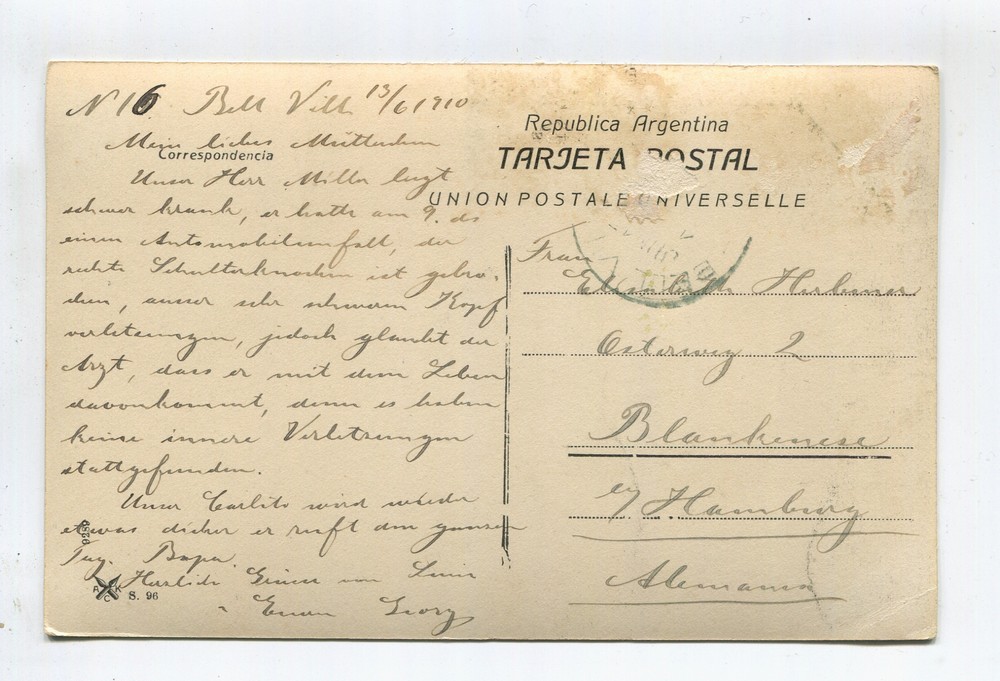 N 16 Bell Ville 13/6 1910
Mein liebes Mütterchen
Correspondencia
Unser Herr Miller liegt
schwer krank, er hatte am 9. ds
einen Automobilunfall, der
rechte Schulterknochen ist gebro-
chen, ausser sehr schweren Kopf
verletzungen, jedoch glaubt der
Arzt, dass er mit dem Leben
davonkommt, denn es haben
keine innere Verletzungen
stattgefunden.
Unser Carlito wird wieder
etwas dicker er ruft den ganzen
Tag Papa.
Herzliche Grüsse von
Euren Georg
9289
A K C
S. 96
Republica Argentina
TARJETA POSTAL
UNION POSTALE UNIVERSELLE
Frau
Elisabeth
Osterweg 2
Blankenese
b/ Hamburg
Alemania